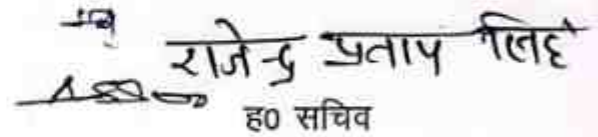 राजेन्द्र प्रताप सिंह
ह0 सचिव